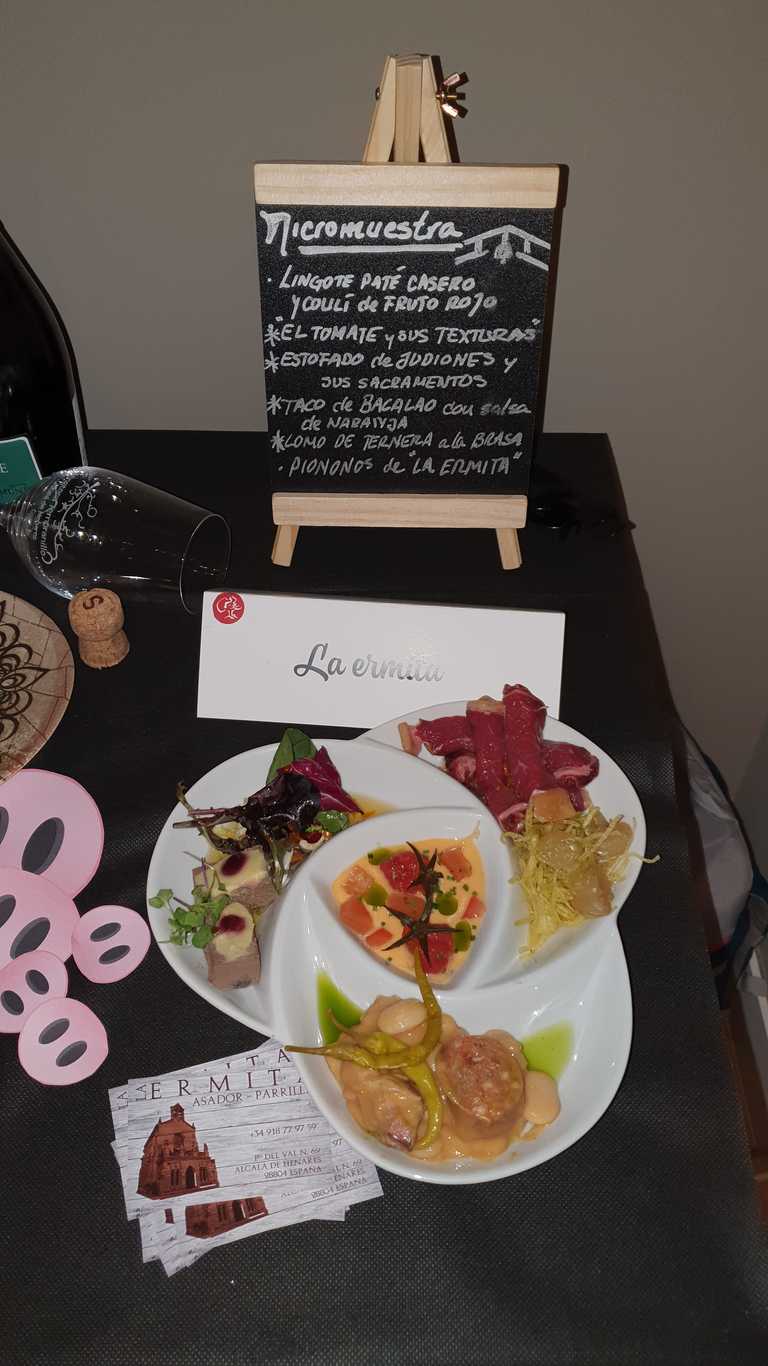 Micromuestra
· LINGOTE PATÉ CASERO
Y COULÍ de FRUTO ROJO
* "EL TOMATE y SUS TEXTURAS"
* ESTOFADO de JUDIONES y
SUS SACRAMENTOS
* TACO de BACALAO con salsa
de NARANJA
* LOMO DE TERNERA a la BRASA
· PIONONOS de "LA ERMITA"
E
S
La ermita
ERMITA
ASADOR - PARRILL
+34 918 77 97 59
Pº DEL VAL N. 69
ALCALA DE HENARES
28804 ESPAÑA
97
L N. 69
ENARES
28804 ESPAÑA